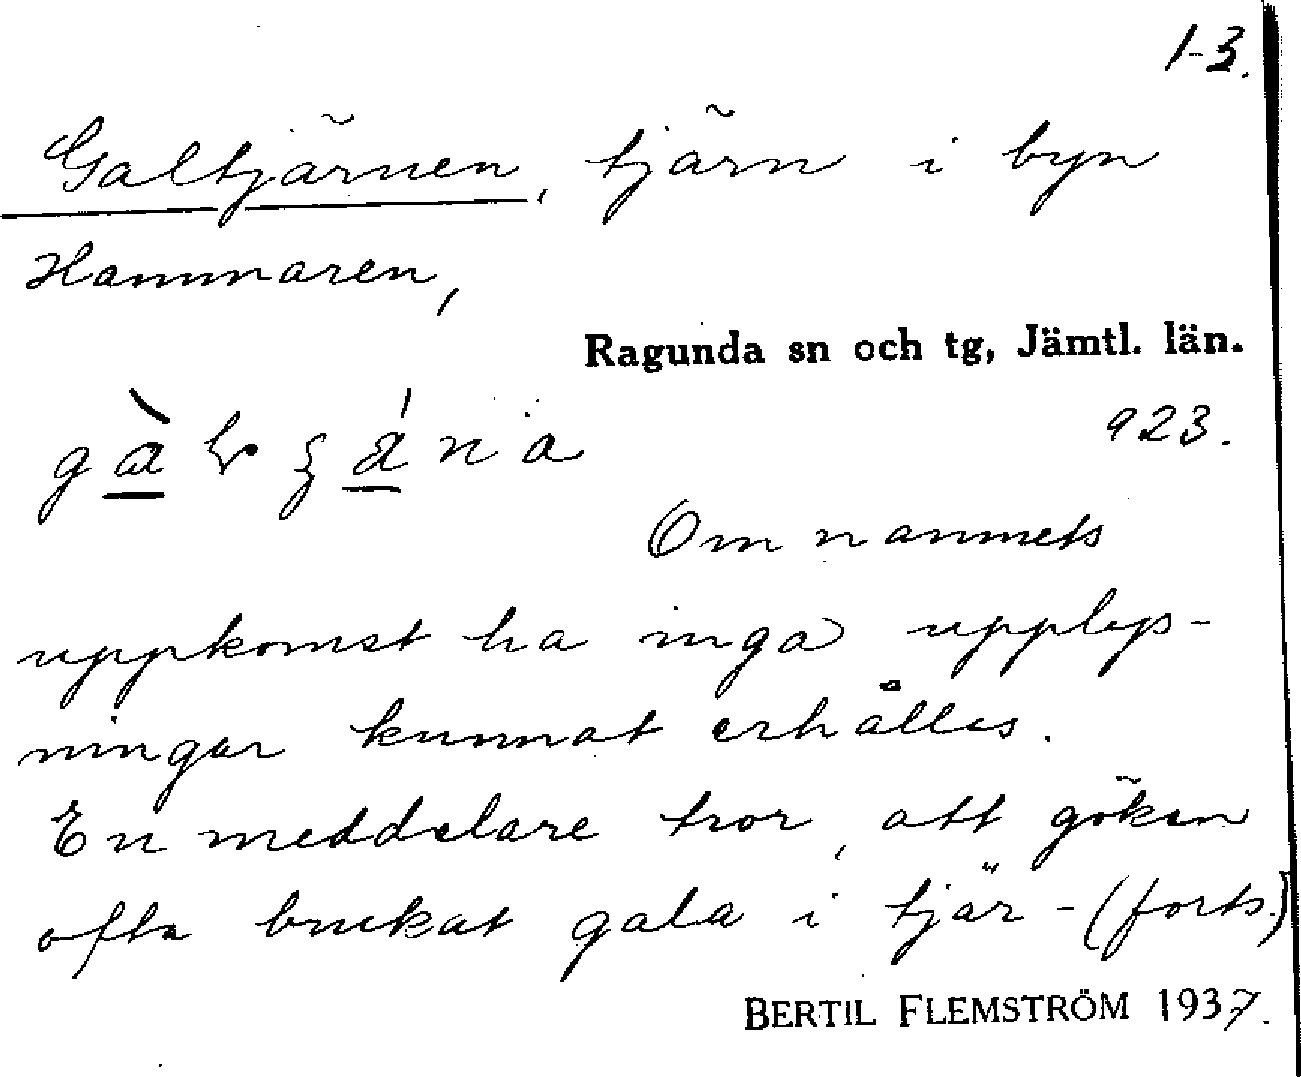 1-3.
Galtjärnen, tjärn i byn
Hammaren,
Ragunda sn och tg, Jämtl. län.
923.
Om namnets
uppkomst ha inga upplys-
ningar kunnat erhålles.
En meddelare tror, att göken
ofta brukat gala i tjär- (forts.)
BERTIL FLEMSTRÖM 1937.